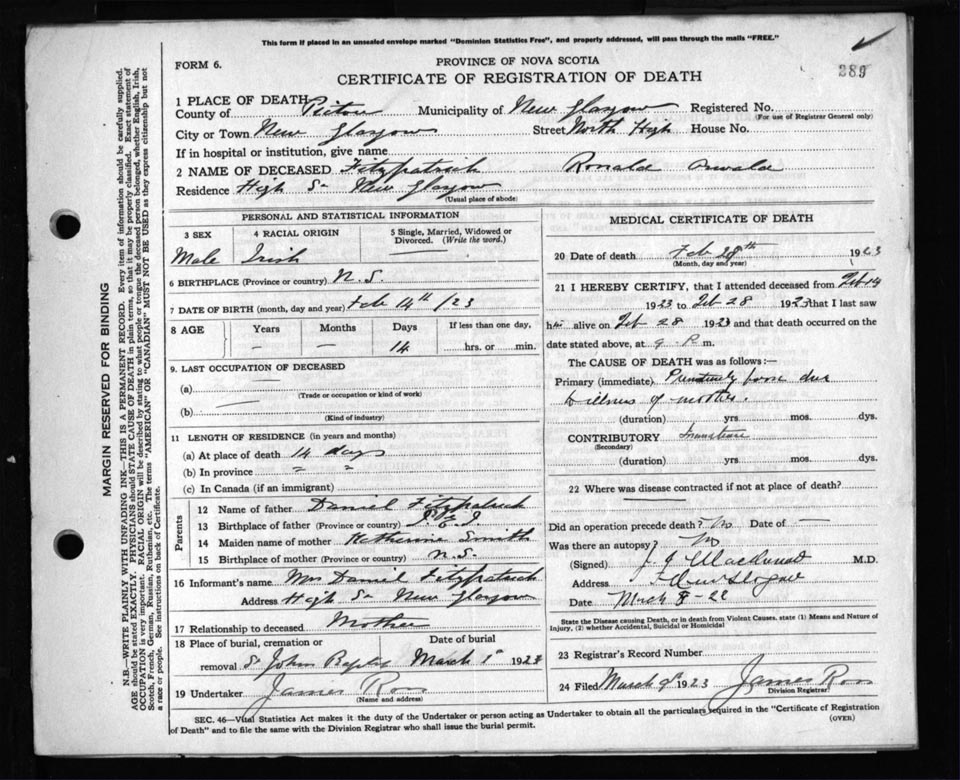 This form if placed in an unsealed envelope marked "Dominion Statistics Free", and properly addressed, will pass through the mails "FREE."
389
FORM 6.
PROVINCE OF NOVA SCOTIA
CERTIFICATE OF REGISTRATION OF DEATH
1 PLACE OF DEATH
County of Pictou Municipality of New Glasgow Registered No.
(For use of Registrar General only)
City or Town New Glasgow Street North High House No.
If in hospital or institution, give name
2 NAME OF DECEASED Fitzpatrick Ronald Oswald
Residence High St New Glasgow
(Usual place of abode)
PERSONAL AND STATISTICAL INFORMATION
3 SEX 4 RACIAL ORIGIN 5 Single, Married, Widowed or Divorced. (Write the word.)
Male Irish
6 BIRTHPLACE (Province or country) N.S.
7 DATE OF BIRTH (month, day and year) Feb 14th /23
8 AGE Years Months Days If less than one day,
— — 14 hrs. or min.
9. LAST OCCUPATION OF DECEASED
(a) —
(Trade or occupation or kind of work)
(b) —
(Kind of industry)
11 LENGTH OF RESIDENCE (in years and months)
(a) At place of death 14 days
(b) In province " "
(c) In Canada (if an immigrant)
Parents
12 Name of father Daniel Fitzpatrick
13 Birthplace of father (Province or country) P.E.I.
14 Maiden name of mother Katherine Smith
15 Birthplace of mother (Province or country) N.S.
16 Informant's name Mrs Daniel Fitzpatrick
Address High St New Glasgow
17 Relationship to deceased Mother
18 Place of burial, cremation or removal St John Baptist Date of burial March 1st 192
19 Undertaker James Ross
(Name and address)
MEDICAL CERTIFICATE OF DEATH
20 Date of death Feb 28th 1923
(Month, day and year)
21 I HEREBY CERTIFY, that I attended deceased from Feb 14
1923 to Feb 28 1923 that I last saw
him alive on Feb 28 1923 and that death occurred on
date stated above, at 9 P. m.
The CAUSE OF DEATH was as follows:—
Primary (immediate) due
to illness of mother.
(duration) yrs. mos. dys.
CONTRIBUTORY
(Secondary)
(duration) yrs. mos. dys.
22 Where was disease contracted if not at place of death?
Did an operation precede death? No Date of —
Was there an autopsy? No
(Signed) J. J. MacDonald M.D.
Address New Glasgow
Date March 8-22
State the Disease causing Death, or in death from Violent Causes, state (1) Means and Nature of Injury, (2) whether Accidental, Suicidal or Homicidal
23 Registrar's Record Number
24 Filed March 9th 1923 James Ross
Division Registrar
SEC. 46—Vital Statistics Act makes it the duty of the Undertaker or person acting as Undertaker to obtain all the particulars required in the "Certificate of Registration
of Death" and to file the same with the Division Registrar who shall issue the burial permit.
(OVER)
MARGIN RESERVED FOR BINDING
N.B.—WRITE PLAINLY WITH UNFADING INK—THIS IS A PERMANENT RECORD. Every item of information should be carefully supplied.
AGE should be stated EXACTLY. PHYSICIANS should STATE CAUSE OF DEATH in plain terms, so that it may be properly classified. Exact statement of
OCCUPATION is very important. RACIAL ORIGIN will be described by stating to what people or tongue the deceased person belonged, whether English, Irish,
Scotch, French, German, Russian, Ruthenian, etc. The terms "AMERICAN" OR "CANADIAN" MUST NOT BE USED as they express citizenship but not
a race or people. See instructions on back of Certificate.